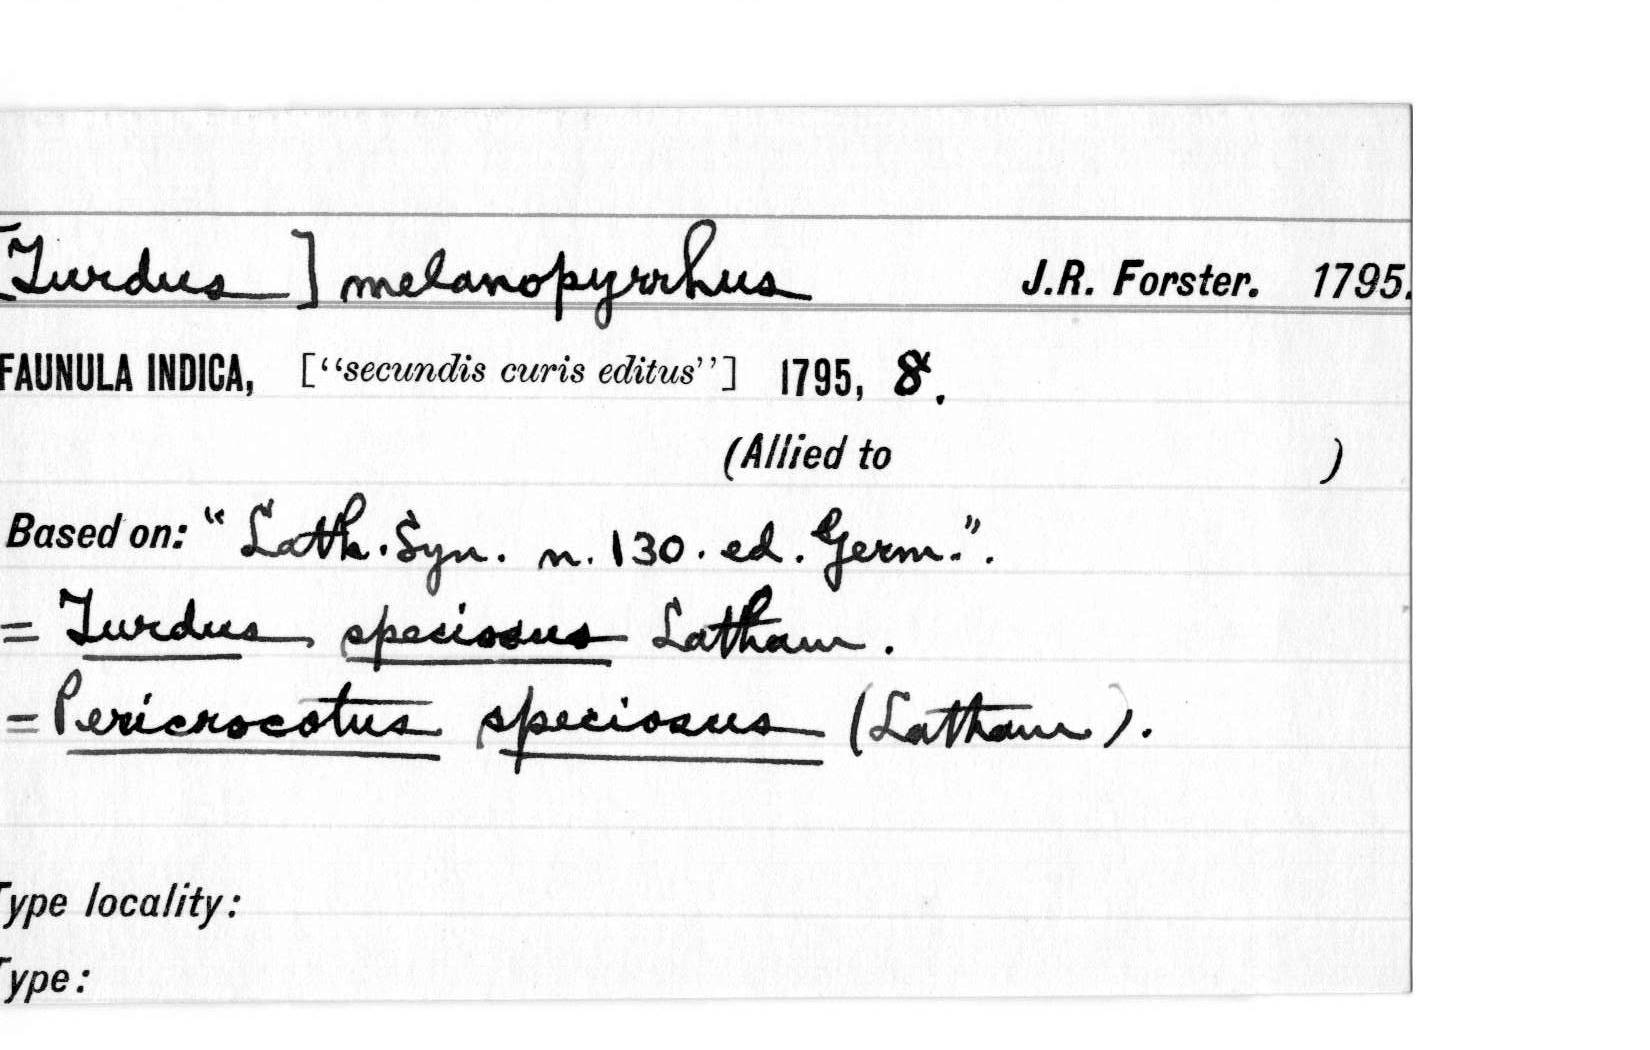 [Turdus ] melanopyrrhus J.R. Forster. 1795.
FAUNULA INDICA, ["secundis curis editus"] 1795, 8.
(Allied to )
Based on: "Lath. Syn. n. 130. ed. Germ.".
= Turdus speciosus Latham.
= Pericrocotus speciosus (Latham).
Type locality:
Type: